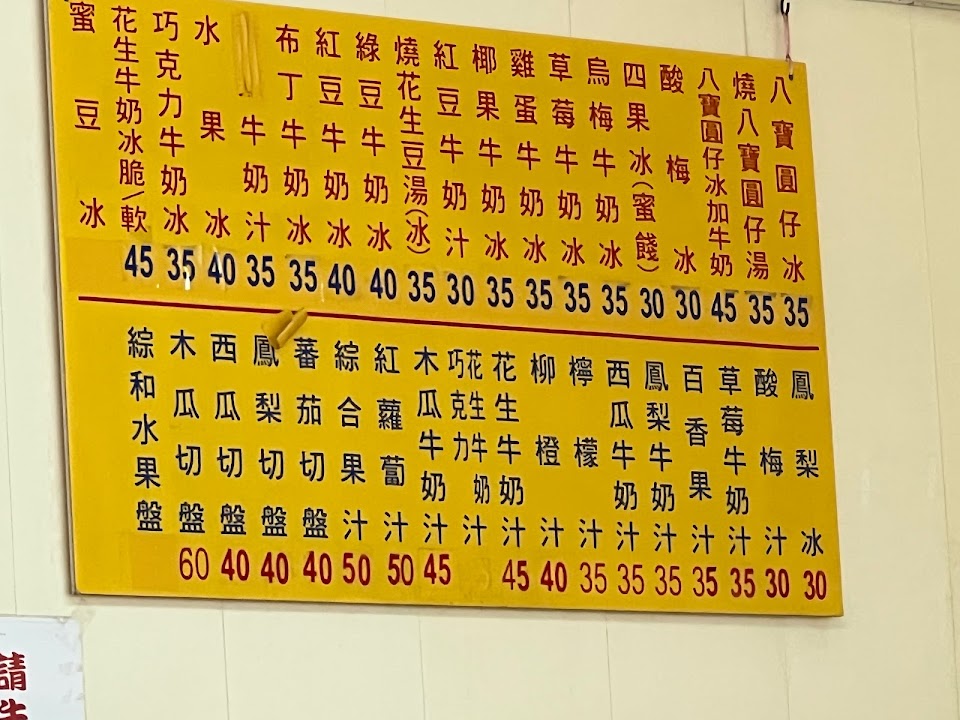 八寶圓仔冰 35
燒八寶圓仔湯 35
八寶圓仔冰加牛奶 45
酸梅冰 30
四果冰(蜜餞) 30
烏梅牛奶冰 35
草莓牛奶冰 35
雞蛋牛奶冰 35
椰果牛奶冰 35
紅豆牛奶汁 30
燒花生豆湯(冰) 35
綠豆牛奶冰 40
紅豆牛奶冰 40
布丁牛奶冰 35
牛奶汁 35
水果冰 40
巧克力牛奶冰 35
花生牛奶冰脆/軟 45
蜜豆冰
鳳梨冰 30
酸梅汁 30
草莓牛奶汁 35
百香果汁 35
鳳梨牛奶汁 35
西瓜牛奶汁 35
檸檬汁 35
柳橙汁 40
花生牛奶汁 45
花生牛奶巧克力汁
木瓜牛奶汁 45
紅蘿蔔汁 50
綜合果汁 50
蕃茄切盤 40
鳳梨切盤 40
西瓜切盤 40
木瓜切盤 60
綜和水果盤
請